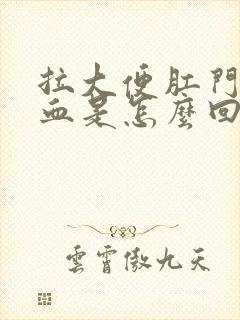 拉大便肛門
血是怎麼回
雲霄傲九天